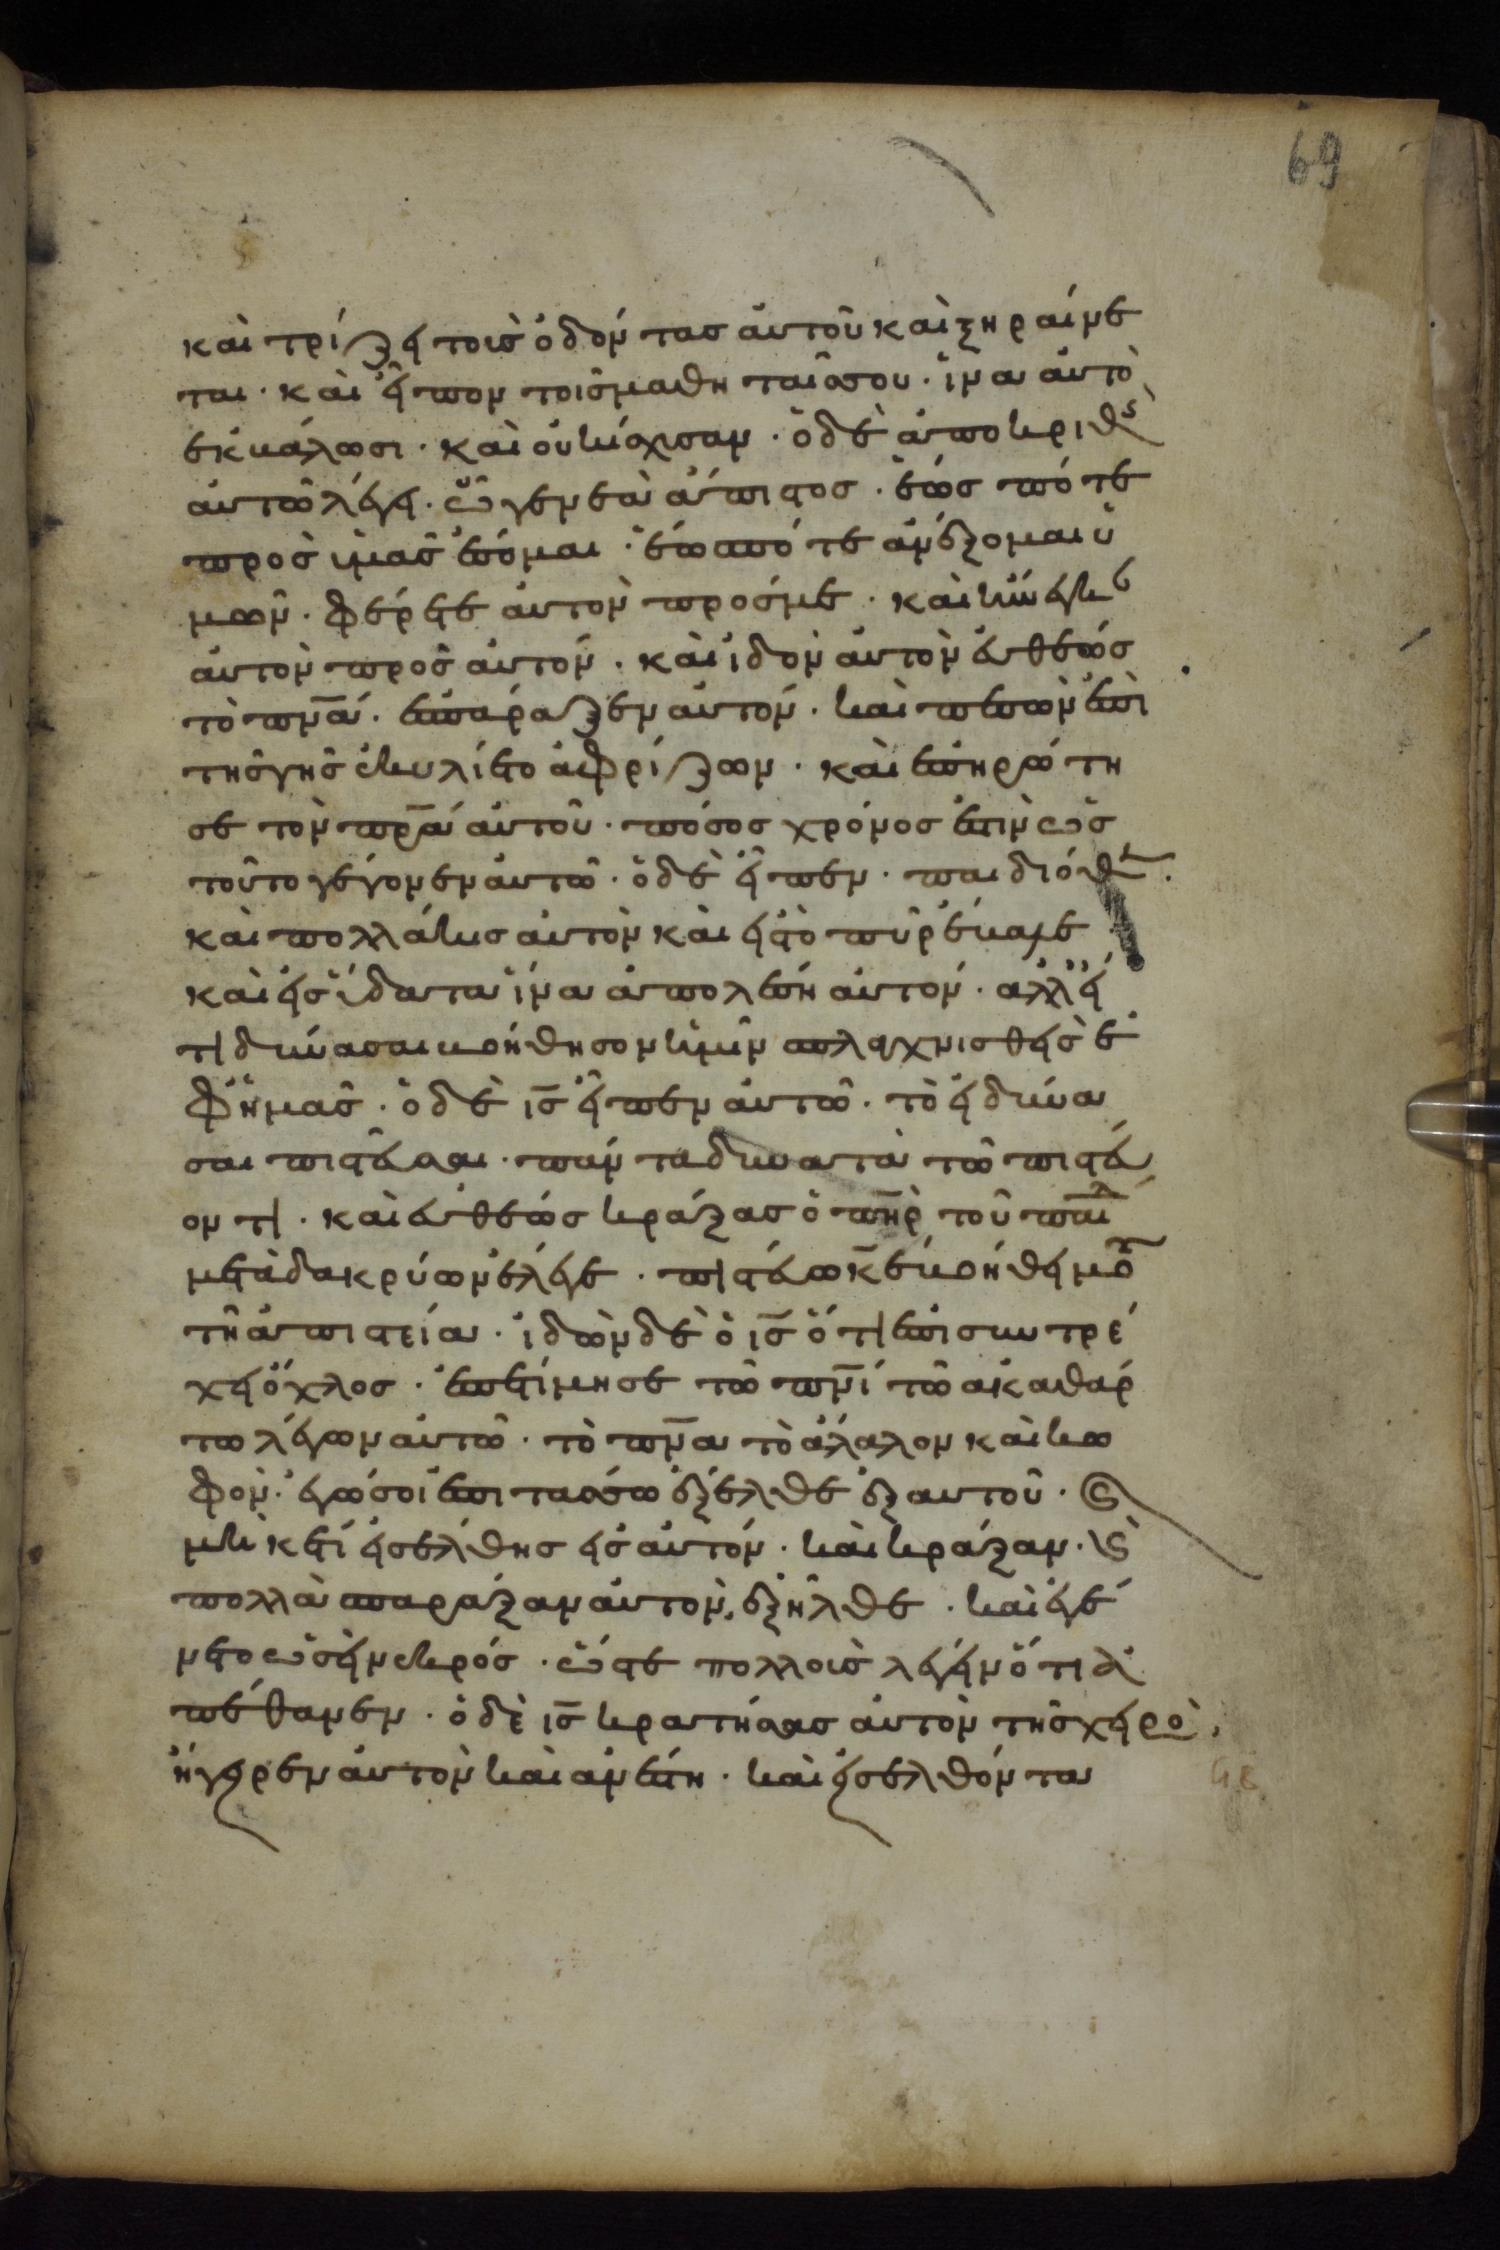 69
καὶ τρίζει τοὺς ὀδόντας αὐτοῦ καὶ ξηραίνε
ται· καὶ εἶπον τοῖς μαθηταῖς σου· ἵνα αὐτὸ
ἐκβάλωσι· καὶ οὐκ ἴσχυσαν· ὁ δὲ ἀποκριθεὶς
αὐτῶ λέγει· ὦ γενεὰ ἄπιστος· ἕως πότε
πρὸς ὑμᾶς ἔσομαι· ἕως πότε ἀνέξομαι ὑ
μῶν· φέρετε αὐτὸν πρός με· καὶ ἤνεγκ
αὐτὸν πρὸς αὐτόν· καὶ ἰδὸν αὐτὸν εὐθέως
τὸ πνᾱ· ἐσπάραξεν αὐτόν· καὶ πεσὼν ἐπὶ
τῆς γῆς ἐκυλίετο ἀφρίζων· καὶ ἐπηρώτη
σε τὸν πρᾱ αὐτοῦ· πόσος χρόνος ἐστὶν ὡς
τοῦτο γέγονεν αὐτῶ· ὁ δὲ εἶπεν· παιδιόθεν·
καὶ πολλάκις αὐτὸν καὶ εἰς τὸ πῦρ ἔβαλε
καὶ εἰς ὕδατα ἵνα ἀπολέση αὐτόν· ἀλλ' εἴ
τι δύνασαι βοήθησον ἡμῖν σπλαχνισθεὶς ἐ
φ' ἡμᾶς· ὁ δὲ ις̄ εἶπεν αὐτῶ· τὸ εἰ δύνα
σαι πιστεῦσαι· πάντα δυνατὰ τῶ πιστεύ
οντι· καὶ εὐθέως κράξας ὁ πη̄ρ τοῦ παιδ
μετὰ δακρύων ἔλεγε· πιστεύω κ̄ε βοήθει μου
τῆ ἀπιστεία· ἰδὼν δὲ ὁ ις̄ ὅτι ἐπισυντρέ
χει ὄχλος· ἐπετίμησε τῶ πνῑ τῶ ἀκαθάρ
τω λέγων αὐτῶ· τὸ πνᾱ τὸ ἄλαλον καὶ κω
φόν· ἐγώ σοι ἐπιτάσσω ἔξελθε ἐξ αὐτοῦ· καὶ
μηκέτι εἰσέλθης εἰς αὐτόν· καὶ κράξαν· καὶ
πολλὰ σπαράξαν αὐτὸν, ἐξῆλθε· καὶ ἐγέ
νετο ὡσεὶ νεκρός· ὥστε πολλοὺς λέγειν ὅτι ἀ
πέθανεν· ὁ δὲ ις̄ κρατήσας αὐτὸν τῆς χειρὸ
ἤγειρεν αὐτὸν καὶ ἀνέστη· καὶ εἰσελθόντα